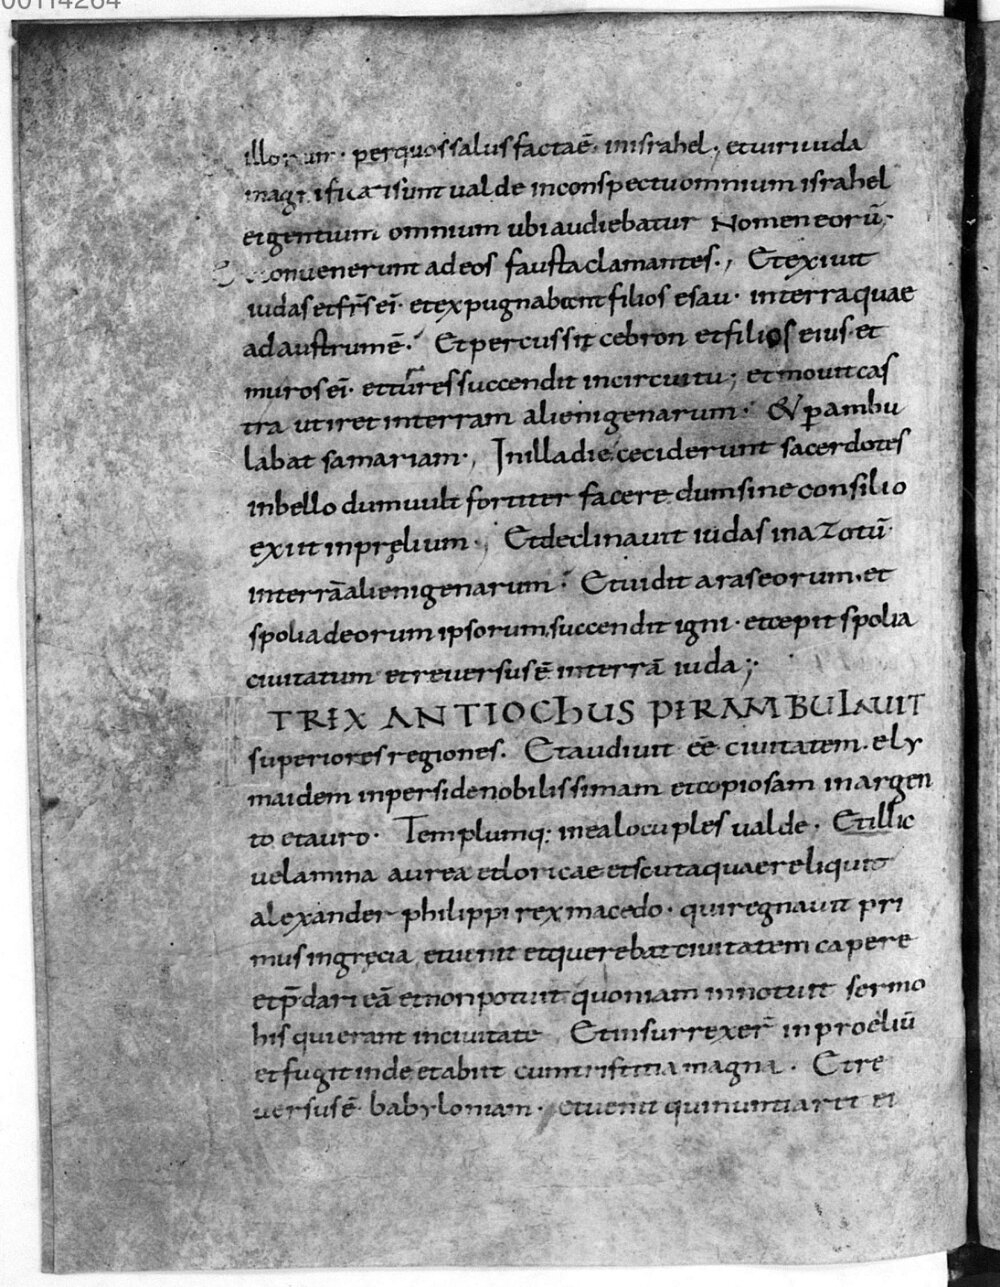 00114264
illorum · perquos salus facta ē · inisrahel ; et uiri iuda
magnificati sunt ualde inconspectu omnium israhel
et gentium omnium ubi audiebatur Nomen eorū ·
Conuenerunt ad eos fausta clamantes · , Et exiuit
iudas et fr̄s ei · et expugnabant filios esau · interra quae
ad austrum ē · Et percussit cebron et filios eius · et
muros ei · et turres succendit incircuitu ; et mouit cas
tra ut iret interram alienigenarum · Et p̱ambu
labat samariam · , Inilla die ceciderunt sacerdotes
inbello dum uult fortiter facere dum sine consilio
exiit inpręlium · , Et declinauit iudas in azotū ·
interrā alienigenarum · Et uidit aras eorum · et
spolia deorum ipsorum succendit igni · et cepit spolia
ciuitatum et reuersus ē interrā iuda ;
ET REX ANTIOChUS PERAMBULAUIT
superiores regiones · Et audiuit ēē ciuitatem · ely
maidem inperside nobilissimam et copiosam inargen
to et auro · Templumq; inea locuples ualde · Et illic
uelamina aurea et loricae et scuta quae reliquit
alexander philippi rex macedo · qui regnauit pri
mus ingrecia et uenit et querebat ciuitatem capere
et p̄dari eā et non potuit quoniam innotuit sermo
his qui erant inciuitate Et insurrexer̄ inproeliū
et fugit inde et abiit cum tristitia magna · Et re
uersus ē babyloniam · et uenit qui nuntiaret ei